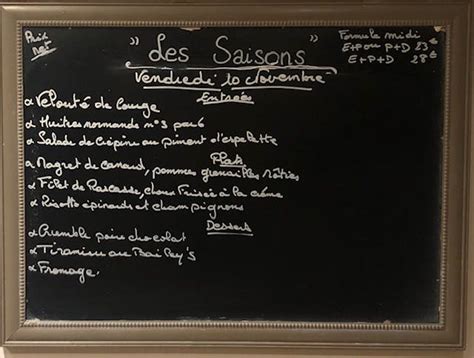 Prix
net
"Les Saisons"
Vendredi 10 Novembre
Formule midi
E+P ou P+D 23€
E+P+D 28€
Entrées
Velouté de courge
Huitres normande n°3 par 6
Salade de Crépine au piment d'espelette
Plats
Magret de canard, pommes grenailles rôties
Filet de Rascasse, choux Frisée à la crème
Risotto épinards et champignons
Desserts
Crumble poire chocolat
Tiramisu au Bailey's
Fromage.